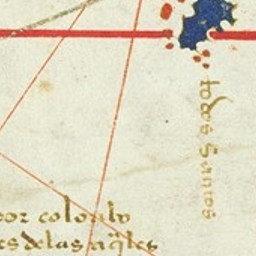 todos santos
por colonbo
es de las aq̃les